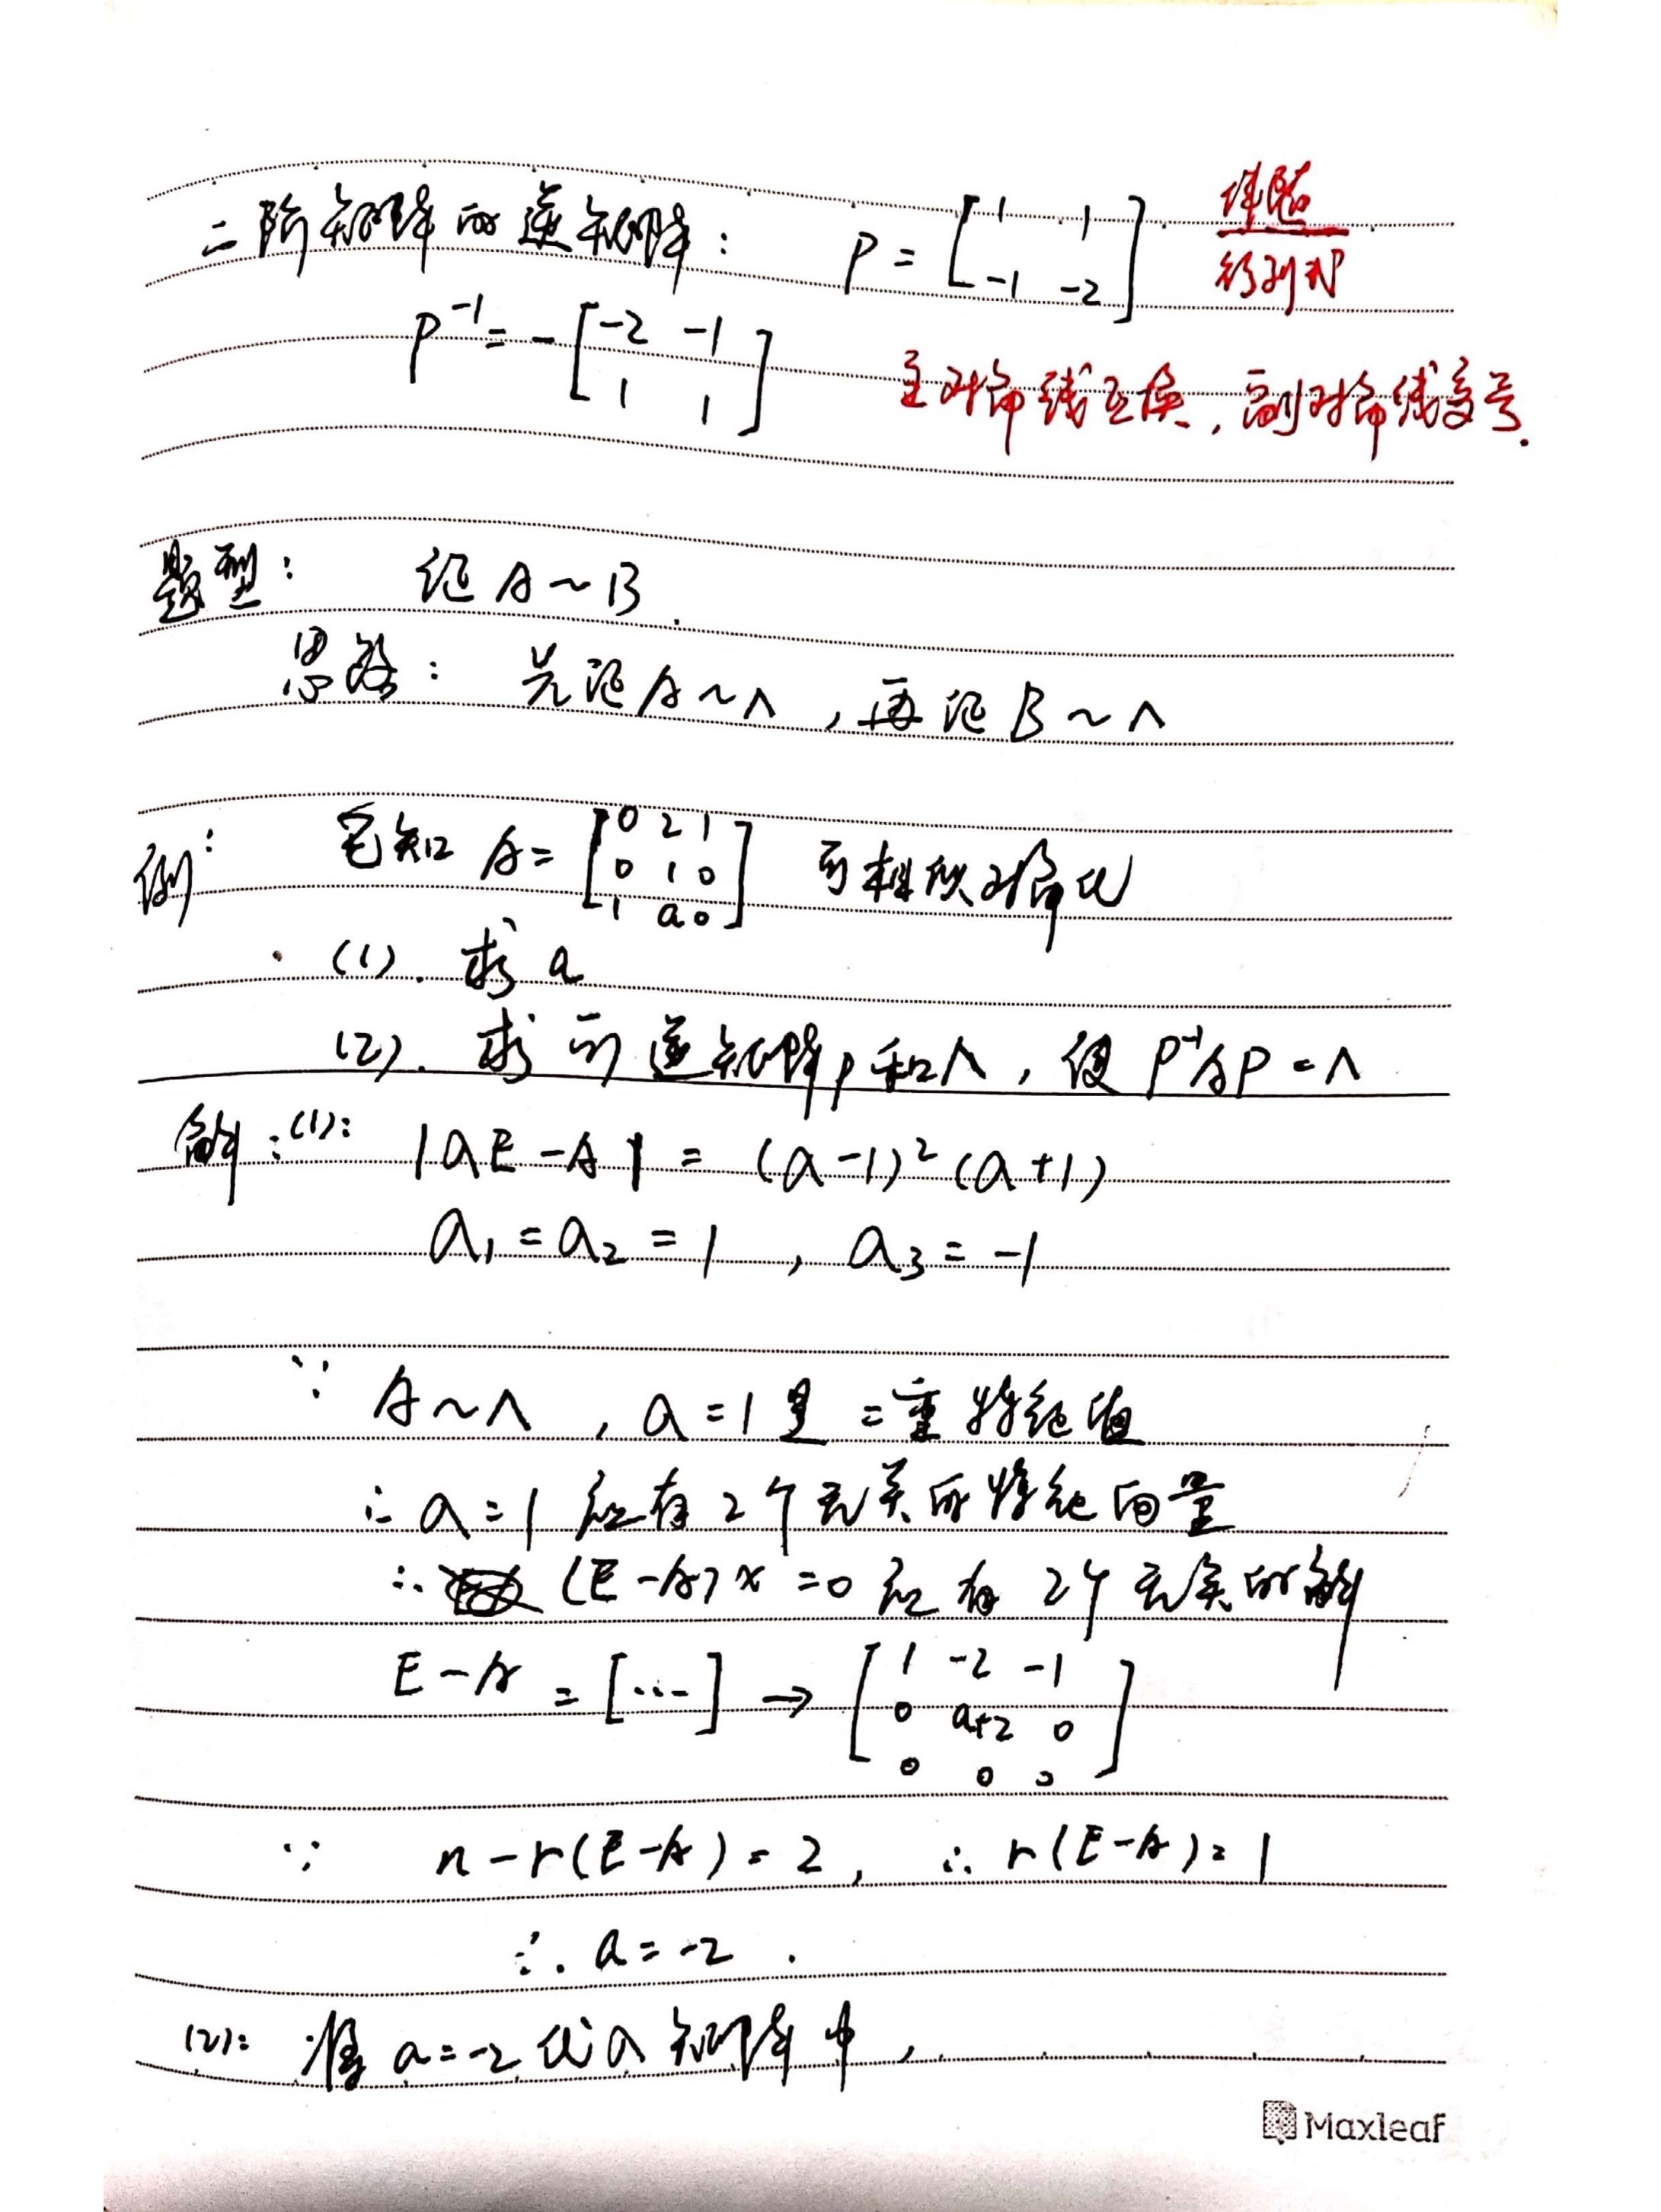 二阶矩阵的逆矩阵: P = [1 1; -1 -2] 伴随/行列式
P⁻¹ = -[-2 -1; 1 1] 主对角线互换,副对角线变号.
题型: 证 A~B.
思路: 先证A~Λ,再证B~Λ
例: 已知 A=[0 2 1; 0 1 0; 1 a 0] 可相似对角化
(1). 求a
(2). 求可逆矩阵P和Λ,使P⁻¹AP=Λ
解:(1): |λE-A| = (λ-1)²(λ+1)
λ₁=λ₂=1, λ₃=-1
∵ A~Λ, λ=1是二重特征值
∴ λ=1应有2个无关的特征向量
∴ (E-A)x=0应有2个无关的解
E-A = [...] → [1 -2 -1; 0 a+2 0; 0 0 0]
∵ n-r(E-A)=2, ∴ r(E-A)=1
∴ a=-2.
(2): 将a=-2代入矩阵中,
Maxleaf